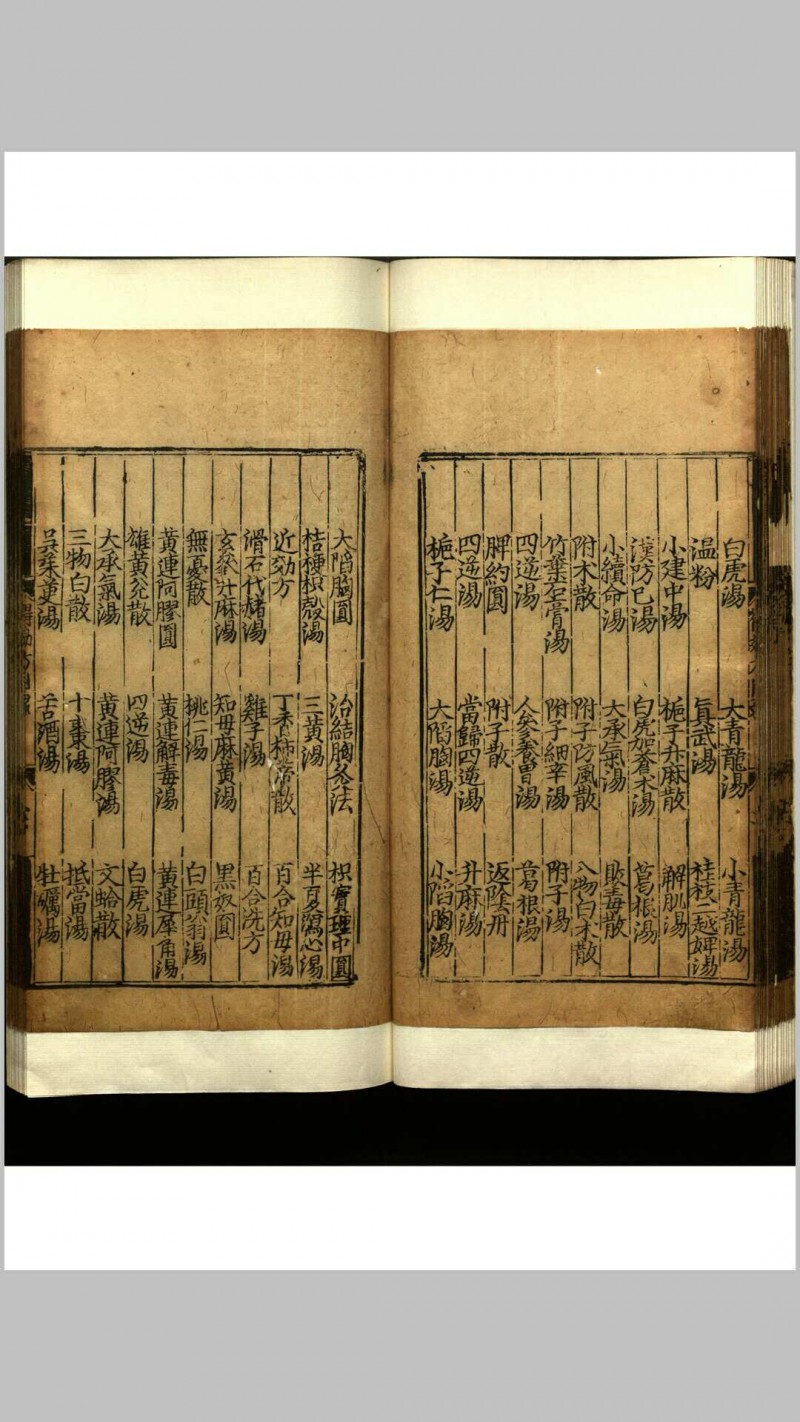 白虎湯 大青龍湯 小青龍湯
温粉 真武湯 桂枝二越婢湯
小建中湯 梔子升麻散 解肌湯
漢防已湯 白虎加蒼术湯 葛根湯
小續命湯 大承氣湯 敗毒散
附术散 附子防風散 八物白术散
竹葉石膏湯 附子細辛湯 附子湯
四逆湯 人參養胃湯 葛根湯
脾約圓 附子散 返陰丹
四逆湯 當歸四逆湯 升麻湯
梔子仁湯 大陷胸湯 小陷胸湯
大陷胸圓 治結胸灸法 枳實理中圓
桔梗枳殼湯 三黄湯 半夏瀉心湯
近効方 丁香柿蒂散 百合知母湯
滑石代赭湯 雞子湯 百合洗方
玄參升麻湯 知母麻黄湯 黑奴圓
無憂散 桃仁湯 白頭翁湯
黄連阿膠圓 黄連解毒湯 黄連犀角湯
雄黄兊散 四逆湯 白虎湯
大承氣湯 黄連阿膠湯 文蛤散
三物白散 十棗湯 抵當湯
吳茱萸湯 苦酒湯 牡蠣湯